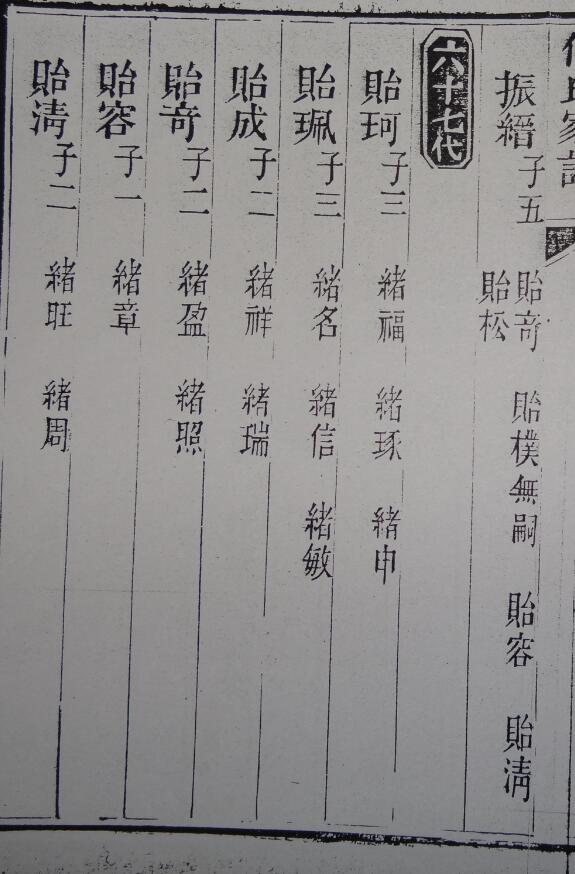 氏家
振縉子五 貽竒 貽樸無嗣 貽容 貽淸
貽松
六十七代
貽珂子三 緒福 緒琢 緒申
貽珮子三 緒名 緒信 緒敏
貽成子二 緒祥 緒瑞
貽竒子二 緒盈 緒照
貽容子一 緒章
貽淸子二 緒旺 緒周